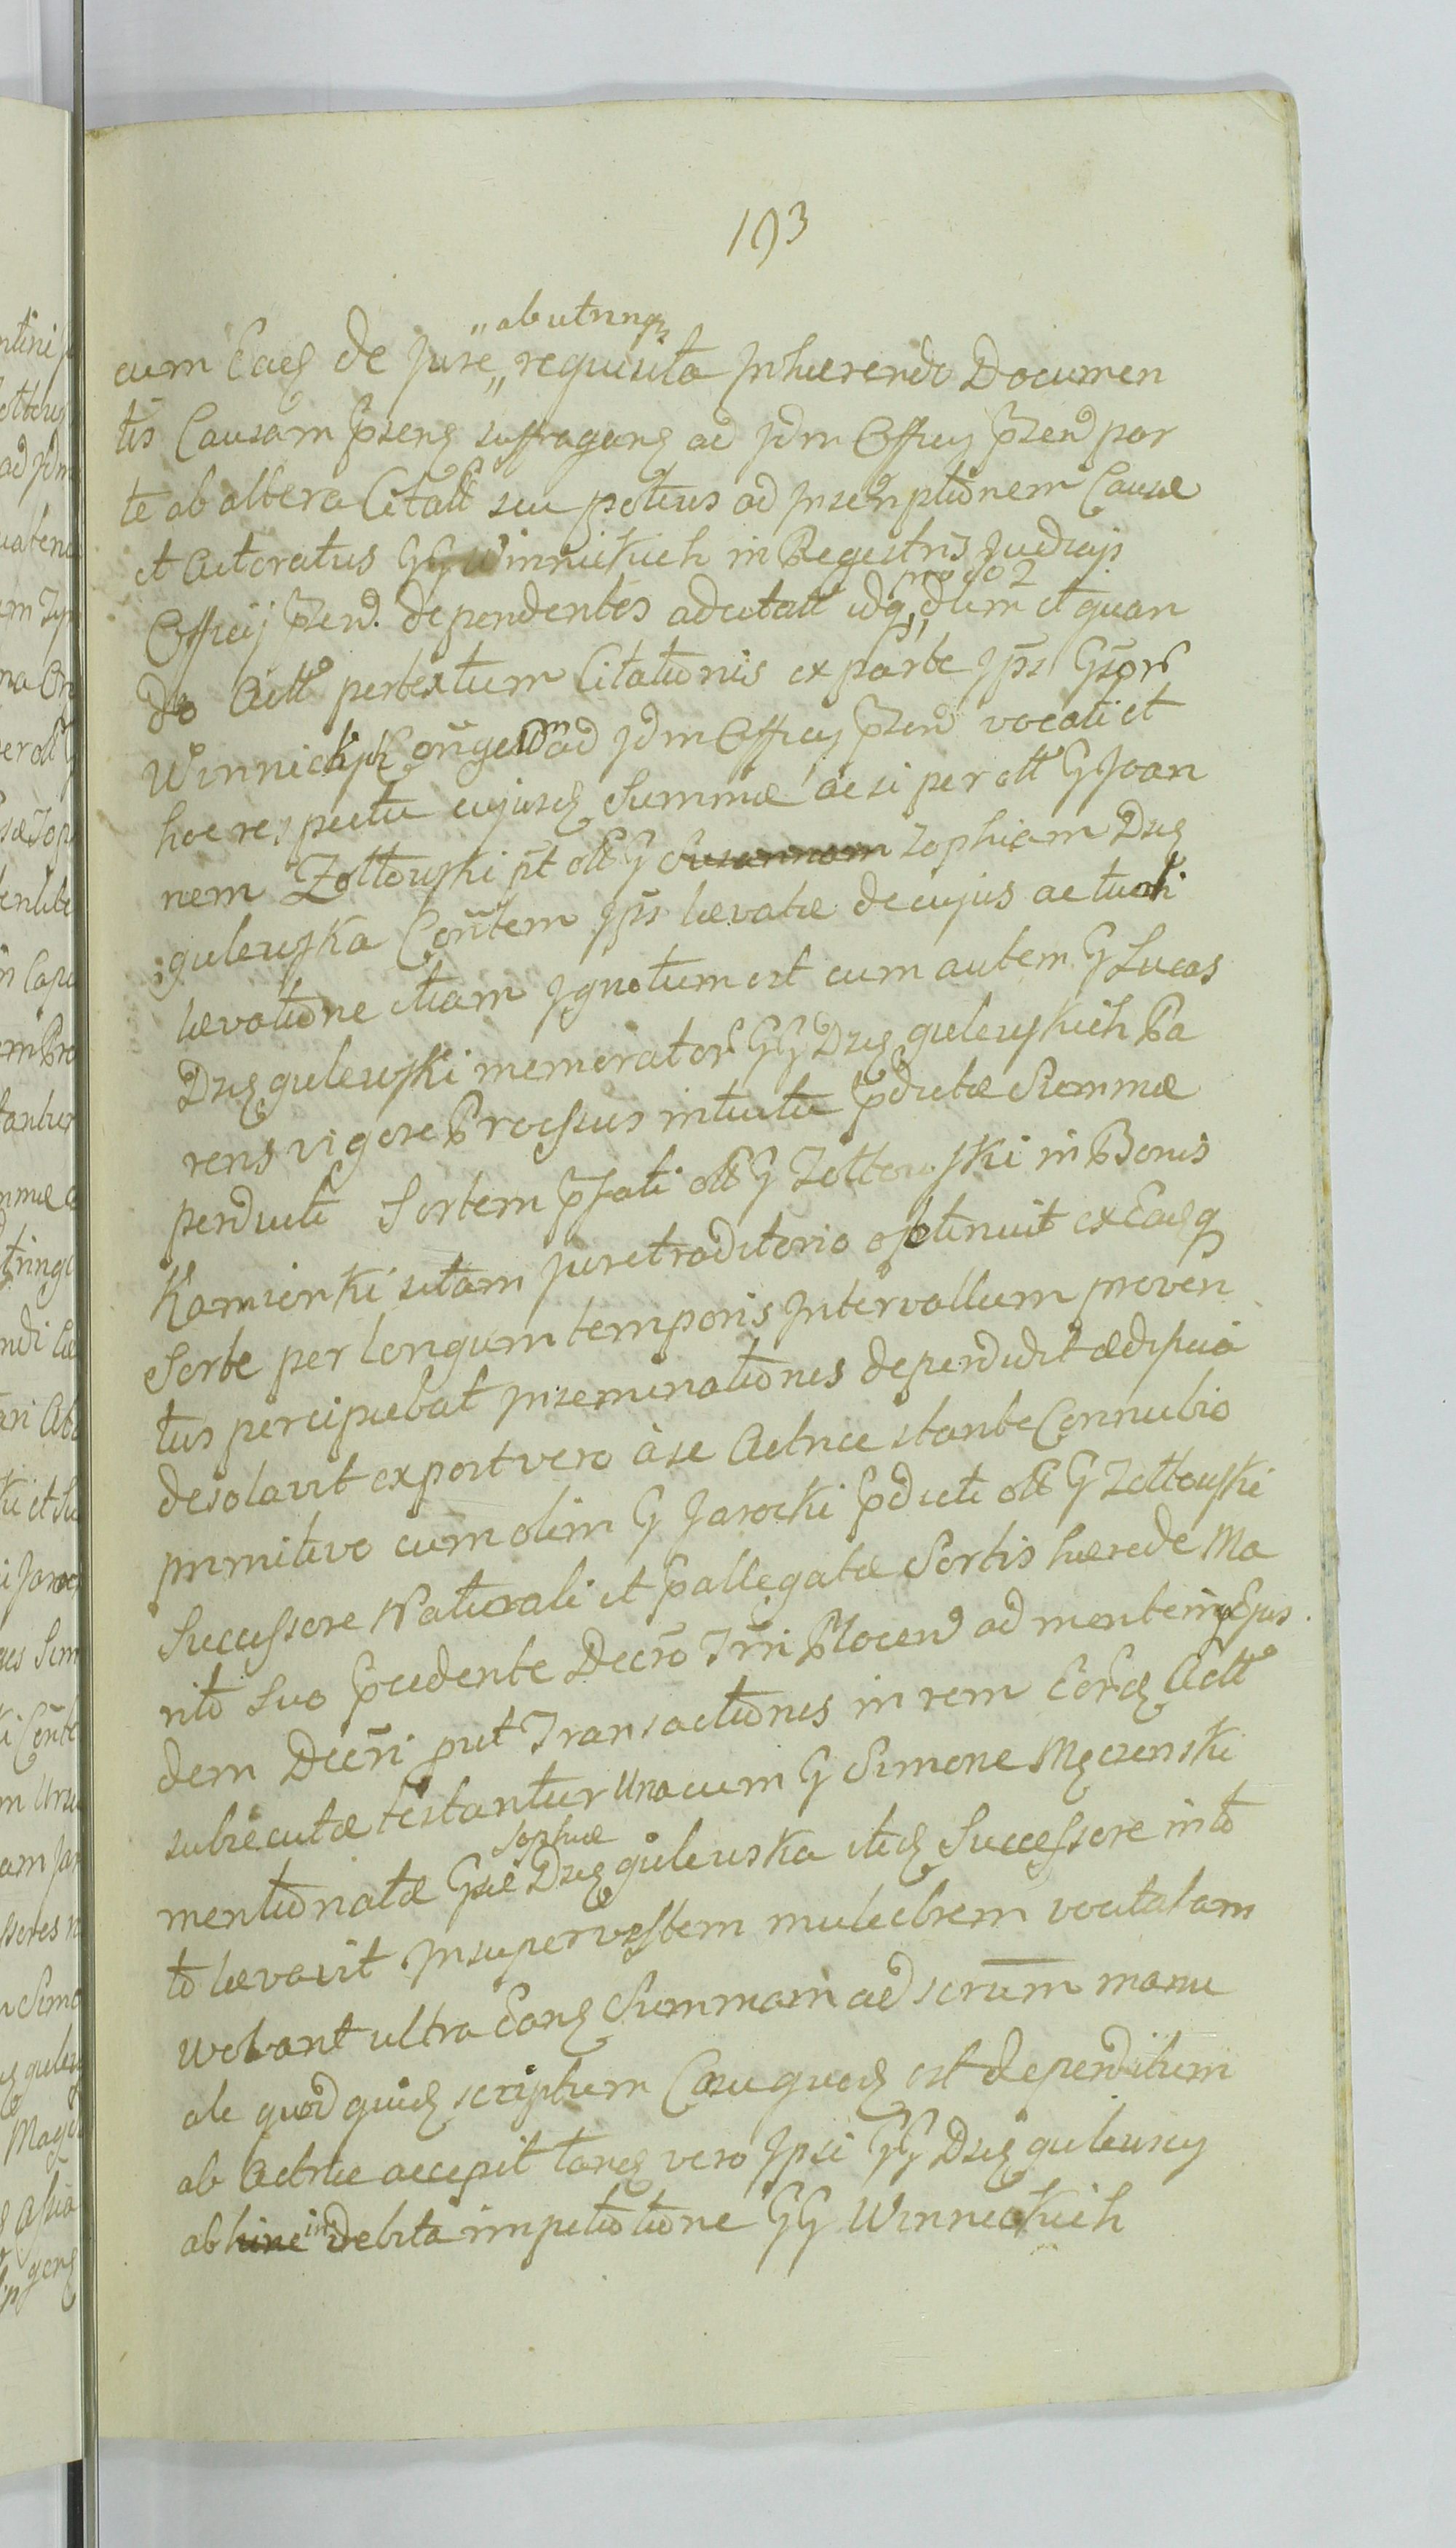 193
"abutrinqz
cum Eaq de jure „ requisita Inhærendo Documen
tis Causam p̃senq suffraganq ad jdm Officij p̃zend par
te ab altera Citatt seu potius ad Inscriptionem Causæ
et Actoratus GG Winnickich in Regestris Judicij
modo 2
Officij p̃zend. dependentes adcitatt idq, dum et quan
do Actt pertextum Citationis ex parte Jps Gsor
Winnickich ad jdm Officij p̃zend vocati et
hoc respectu cujusq Summæ ac si per ott G Joan
nem Zołtowski p̃t ott G Susannam Zophiam Dzię
gulewska Cõntem Jps lævatæ de cujus actuali
lævatione etiam Ignotum est cum autem G Lucas
Dzięgulewski memorator GG Dzięgulewskich Pa
rens vigore Processus intuitu p̃dictæ Summæ
perducti Sortem p̃fati ott G Zołtowski in Bonis
Kamionki sitam jure traditorio obtinuit ex Eaqq
Sorte per longum temporis Intervallum proven
tus percipiebat Inseminationes deperdidit ædificia
desolavit ex post vero à se Actrice stante Connubio
primitivo cum olim G Jarocki p̃dicti ott G Zołtowski
Successore Naturali et p̃allegatæ Sortis hærede Ma
rito Suo p̃cedente Decrõ Trñi Plocend ad mentem Ejus
dem Decrñi put Transactiones in rem Eorq Actt
subsecutæ testantur Una cum G Simone Męczenski
Sophiæ
mentionatæ Gsæ Dzięgulewska itiq Successore in to
to lævavit Insuper vestem muliebrem vocitatam
ultra Eanq Summam ad scrum manu
ale quod quidq scriptum Casu quoq est deperditum
ab Actrice accepit tanq vero Jpsi GG Dzięgulewscy
ab hinc indebita impetitione GG Winnickich